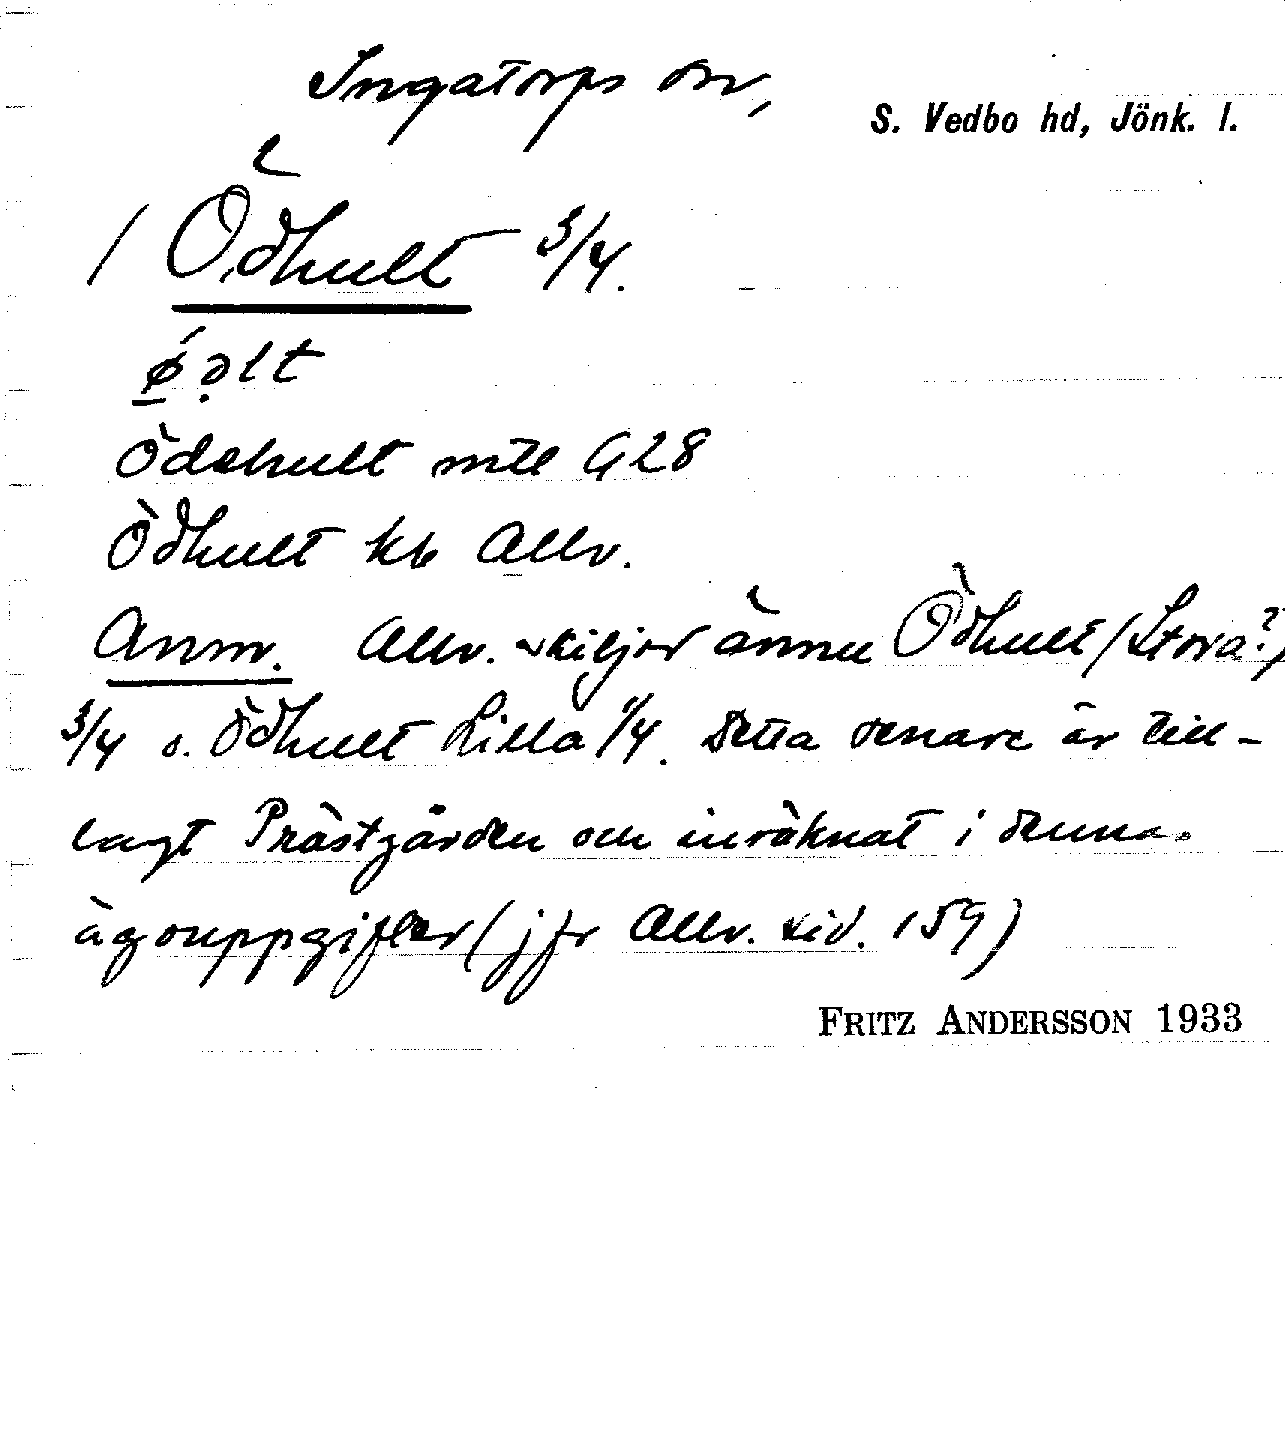 Ingatorps sn,
S. Vedbo hd, Jönk. l.
/ Ödhult 3/4.
ǿ̱ə̣lt
Ödehult mtl G28
Ödhult kb Allv.
Anm. Allv. skiljer ännu Ödhult (Stora?)
3/4 o. Ödhult Lilla 1/4. Detta senare är till-
lagt Prästgården och inräknat i denna
ägouppgifter (jfr Allv. sid. 159)
FRITZ ANDERSSON 1933